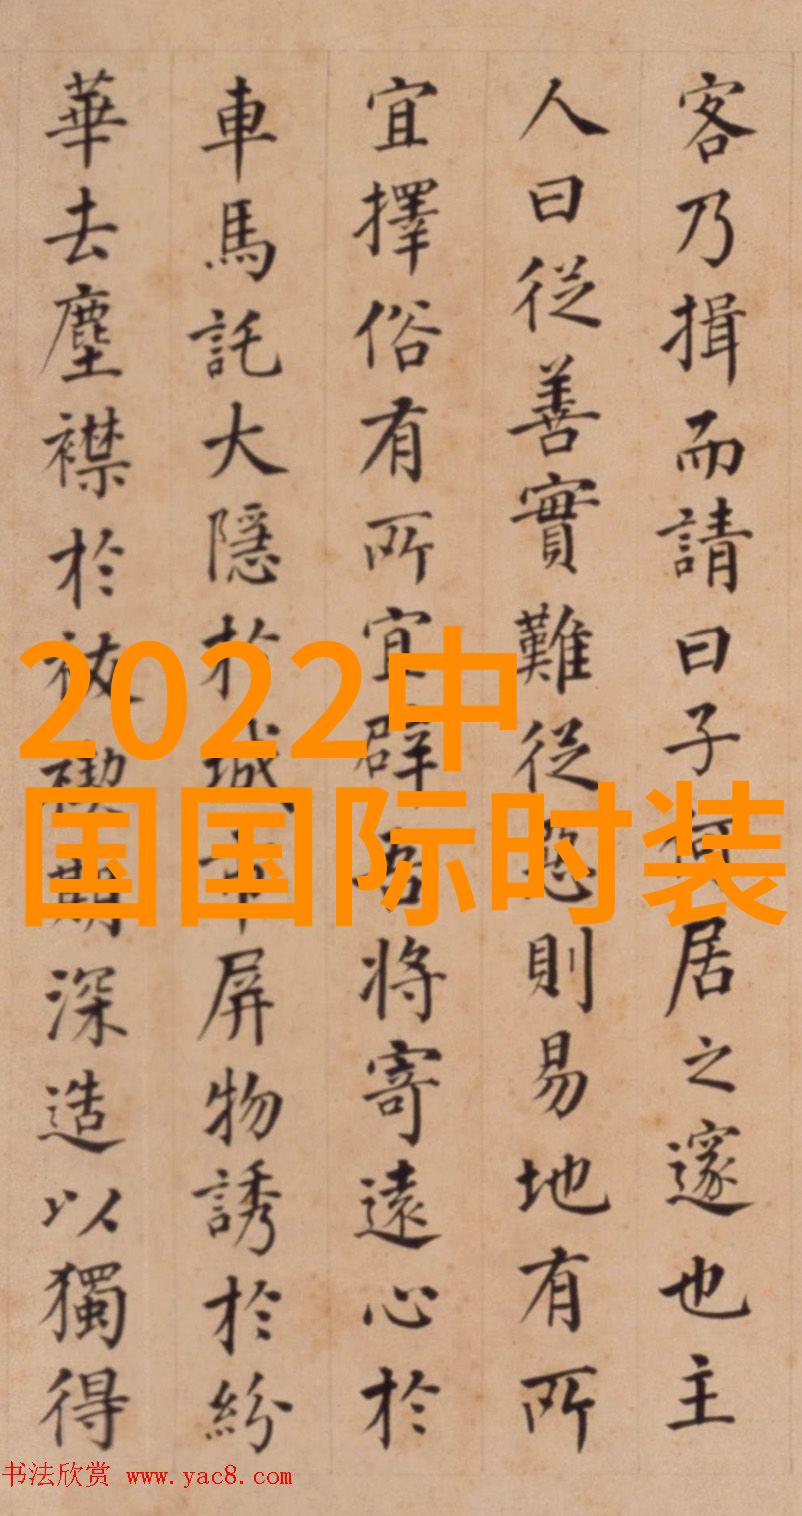 客乃揖而請曰子何居之邃也主
人曰從善實難從惡則易地有所
宜擇俗有所宜辟吾將寄遠心於
車馬託大隱於城市屏物誘於紛
華去塵襟於祓禊期深造以獨得
2022中
国国际时装
书法欣赏 www.yac8.com